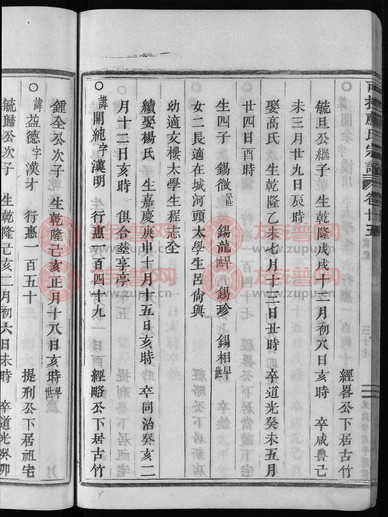 經畧公下居古竹
毓旦公繼子　生乾隆戊戌十三月初八日亥時　卒咸豊己
未三月廿九日辰時
娶高氏　生乾隆乙未七月十三日丑時　卒道光癸未五月
廿四日酉時
生四子　錫微　錫龍早世　錫珍　錫相早世
女二長適在城河頭太學生呂尙興
幼適文樓太學生程志全
續娶楊氏　生嘉慶庚申十月十五日亥時　卒同治癸亥二
月十二日亥時　俱合塟享亭
諱開純字漢明　行惠一百四十九　經略公下居古竹
鍾全公次子　生乾隆己亥正月十八日亥時早世
諱益德字漢才　行惠一百五十　提刑公下居祖宅
毓歸公次子　生乾隆己亥二月初六日未時　卒道光癸卯